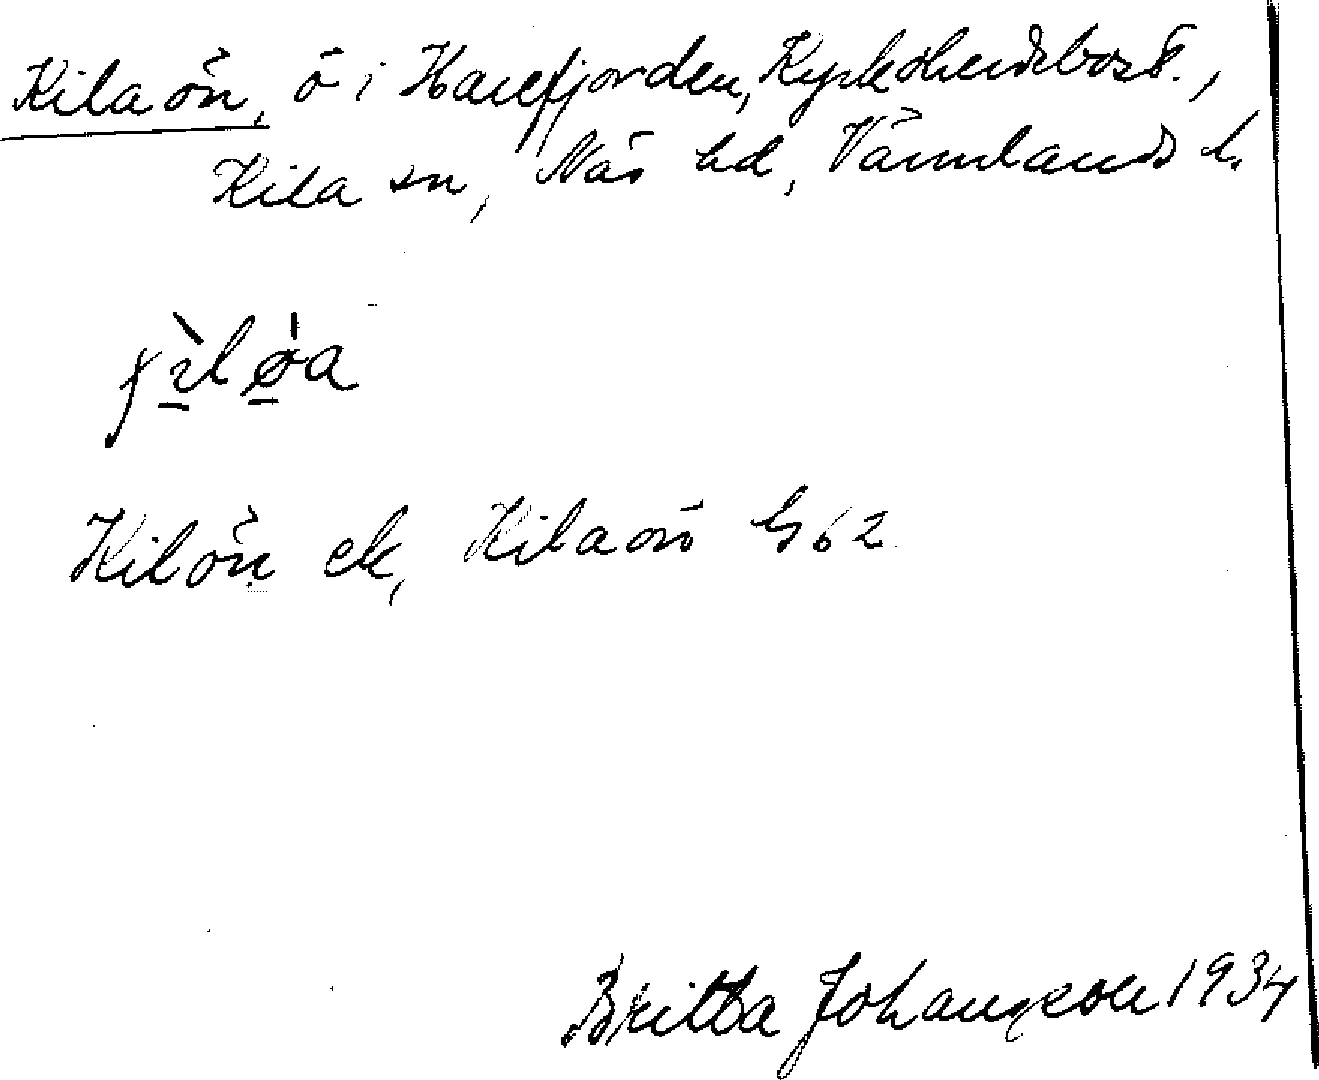 Kilaön, ö i Harefjorden, Kyrkohemsbost.,
Kila sn, Näs hd, Värmlands l.
Kilön ek, Kilaön G62
Britta Johansson 1934